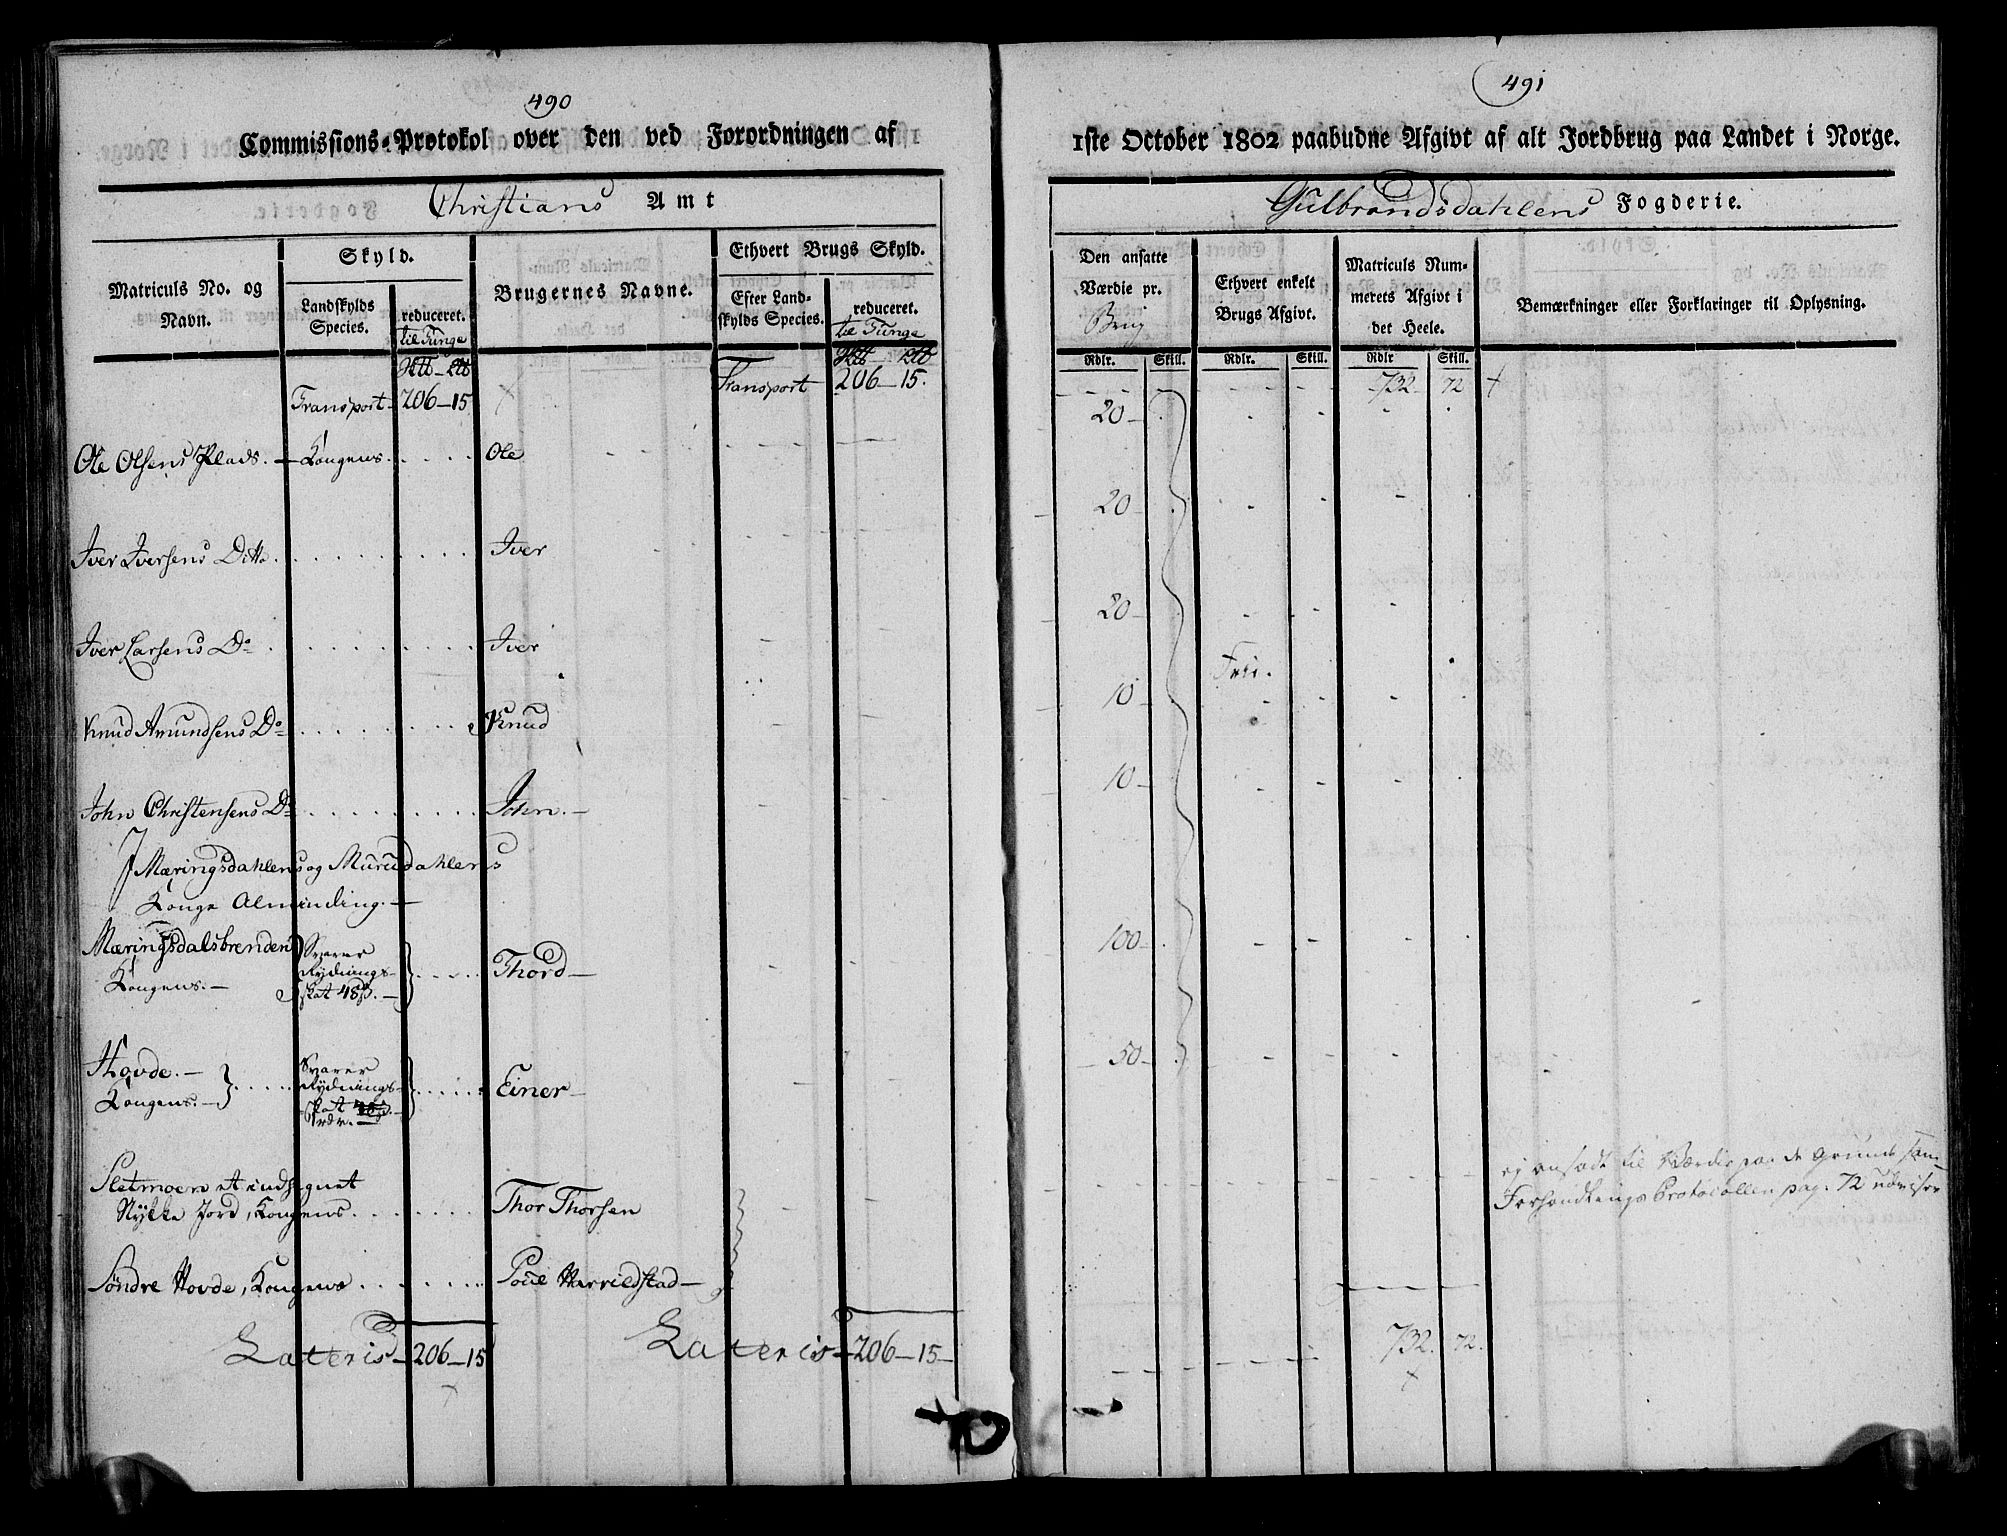 490
Commissions-Protokol over den ved Forordningen af
Christians Amt
Matriculs No. og Navn.
Skyld.
Landskylds Species.
reduceret.
til Tunge
Brugernes Navne.
Ethvert Brugs Skyld.
Efter Landskylds Species.
reduceret.
til Tunge
Transport 206 - 15
Transport 206 - 15.
Ole Olsens Plads. - Kongens. Ole
Iver Iversens Ditto. Iver
Iver Larsens Do Iver
Knud Amundsens Do Knud
John Christensens Do John. -
I Mæringsdahlens og Murudahlens
Konge Alminding. -
Mæringsdalsbrenden Svarer Thord -
Kongens. - Rydnings-
skat 48 s. -
Hovde. - Svarer Einer -
Kongens. - Rydnings-
skat
Sletmoen et indhegnet Thor Thorsen
Stykke Jord, Kongens.
Søndre Hovde, Kongens Poul Harrildstad -
Lateris - 206 - 15
Lateris - 206 - 15 -
491
1ste October 1802 paabudne Afgivt af alt Jordbrug paa Landet i Norge.
Gulbrandsdahlens Fogderie.
Den ansatte Værdie pr.
Brug
Rdlr. Skill.
Ethvert enkelt Brugs Afgivt.
Rdlr. Skill.
Matriculs Nummerets Afgivt i det Heele.
Rdlr Skill.
Bemærkninger eller Forklaringer til Oplysning.
732 72
20 -
20 -
20 -
Frie.
10 -
10 -
100 -
50 -
ej ansadt til Værdie paa de Grunde som
Forhandlings Protocollen pag. 72 udviser
732. 72.